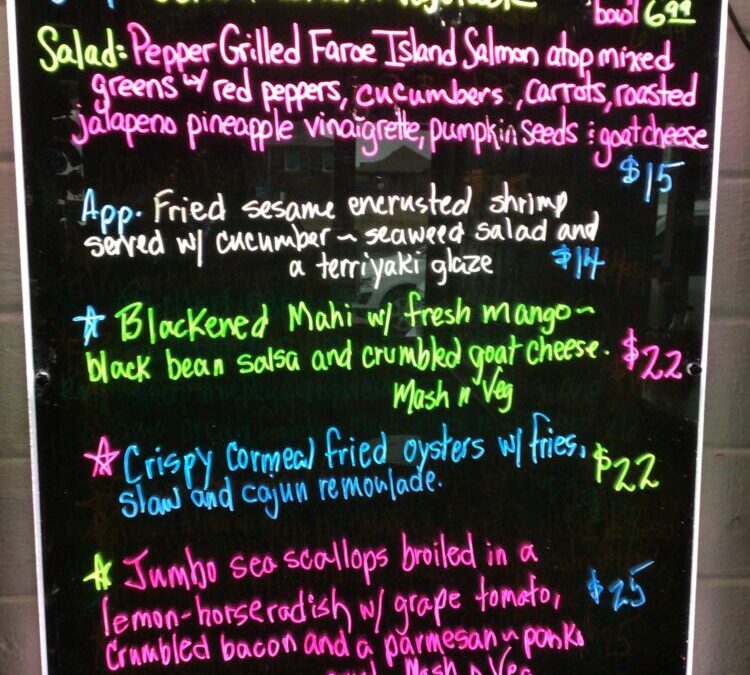 bowl 6.99
Salad: Pepper Grilled Faroe Island Salmon atop mixed
greens w/ red peppers, cucumbers, carrots, roasted
jalapeno pineapple vinaigrette, pumpkin seeds & goat cheese
$15
App. Fried sesame encrusted shrimp
served w/ cucumber ~ seaweed salad and
a terriyaki glaze $14
Blackened Mahi w/ fresh mango ~
black bean salsa and crumbled goat cheese. $22
Mash n Veg
Crispy Cormeal fried oysters w/ fries,
slaw and cajun remoulade. $22
Jumbo sea scallops broiled in a
lemon-horseradish w/ grape tomato, $25
crumbled bacon and a parmesan ~ panko
Mash n Veg